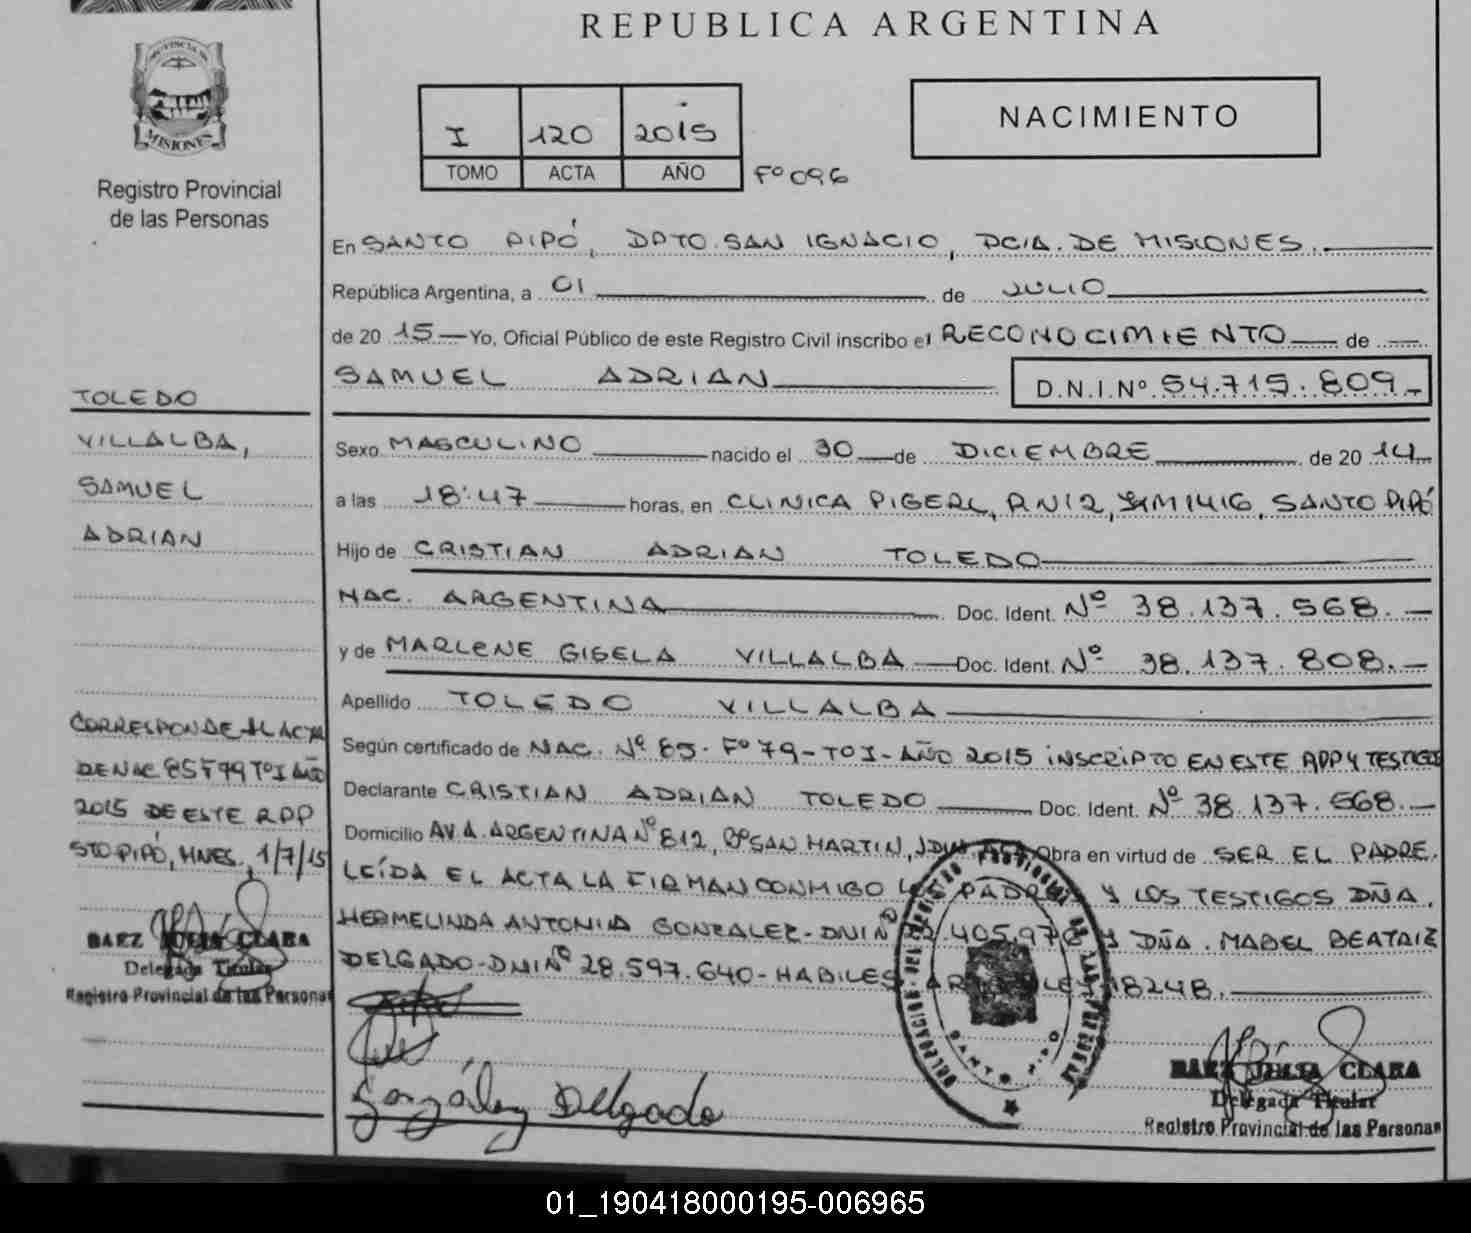 REPUBLICA ARGENTINA
PROVINCIA DE
MISIONES
Registro Provincial
de las Personas
I 120 2015
TOMO ACTA AÑO
Fº 096
NACIMIENTO
En SANTO PIPÓ, DPTO. SAN IGNACIO, PCIA. DE MISIONES.
República Argentina, a 01 de JULIO
de 20 15 Yo, Oficial Público de este Registro Civil inscribo el RECONOCIMIENTO de
SAMUEL ADRIAN D.N.I.Nº 54.715.809.-
Sexo MASCULINO nacido el 30 de DICIEMBRE de 20 14
a las 18:47 horas, en CLINICA PIGERL, RN12, KM1416, SANTO PIPÓ
Hijo de CRISTIAN ADRIAN TOLEDO
NAC. ARGENTINA Doc. Ident. Nº 38.137.568.-
y de MARLENE GISELA VILLALBA Doc. Ident. Nº 38.137.808.-
Apellido TOLEDO VILLALBA
Según certificado de NAC. Nº 85- Fº 79-TOI-AÑO 2015 INSCRIPTO EN ESTE RPP Y TESTIGOS
Declarante CRISTIAN ADRIAN TOLEDO Doc. Ident. Nº 38.137.568.-
Domicilio AVDA. ARGENTINA Nº 812, Bº SAN MARTIN, Obra en virtud de SER EL PADRE.
LEÍDA EL ACTA LA FIRMAN CONMIGO LOS PADRES Y LOS TESTIGOS DÑA.
HERMELINDA ANTONIA GONZALEZ-DNI Nº Y DÑA. MABEL BEATRIZ
DELGADO-DNI Nº 28.597.640-HABILES 18248.
González Delgado
BAEZ JULIA CLARA
Delegada Titular
Registro Provincial de las Personas
TOLEDO
VILLALBA,
SAMUEL
ADRIAN
CORRESPONDE AL ACTA
DE NAC 85 F 79 TºI AÑO
2015 DE ESTE RPP
STO PIPÓ, MNES. 1/7/15
BAEZ JULIA CLARA
Delegada Titular
Registro Provincial de las Personas
01_190418000195-006965